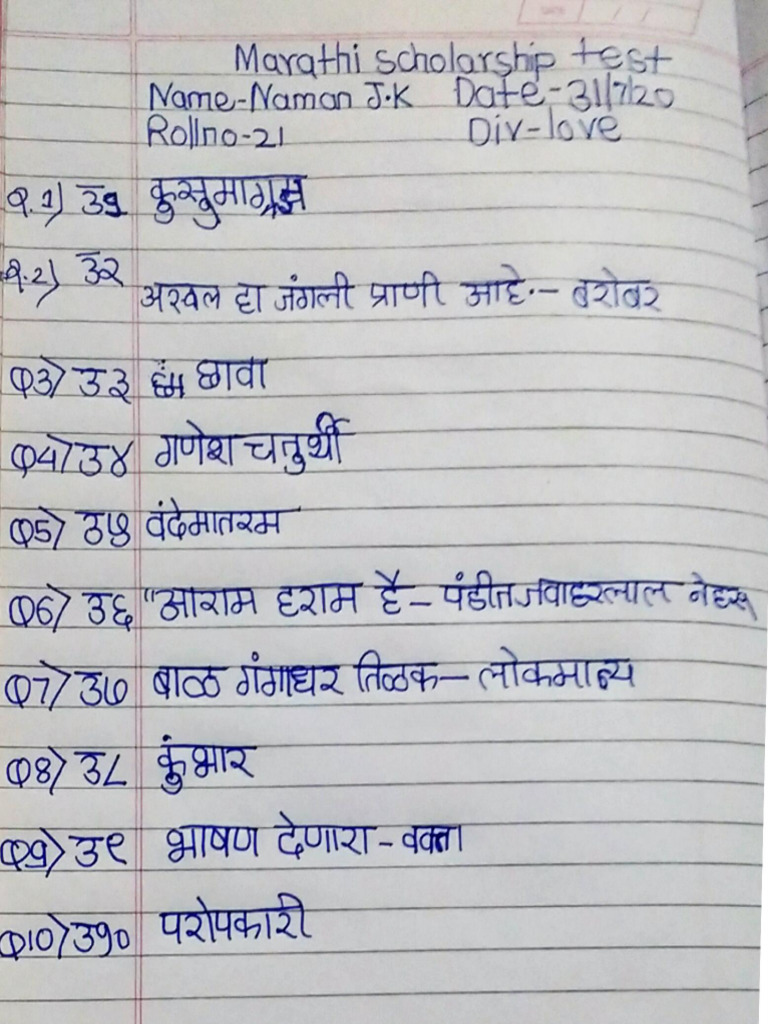 Marathi scholarship test
Name-Naman J.K Date-31/7/20
Rollno-21 Div-love
Q.1) उ१ कुसुमाग्रज
Q.2) उ२ अस्वल हा जंगली प्राणी आहे.- बरोबर
Q3) उ३ छावा
Q4) उ४ गणेश चतुर्थी
Q5) उ५ वंदेमातरम
Q6) उ६ "आराम हराम है - पंडीत जवाहरलाल नेहरू
Q7) उ७ बाळ गंगाधर तिळक- लोकमान्य
Q8) उ८ कुंभार
Q9) उ९ भाषण देणारा - वक्ता
Q10) उ१० परोपकारी